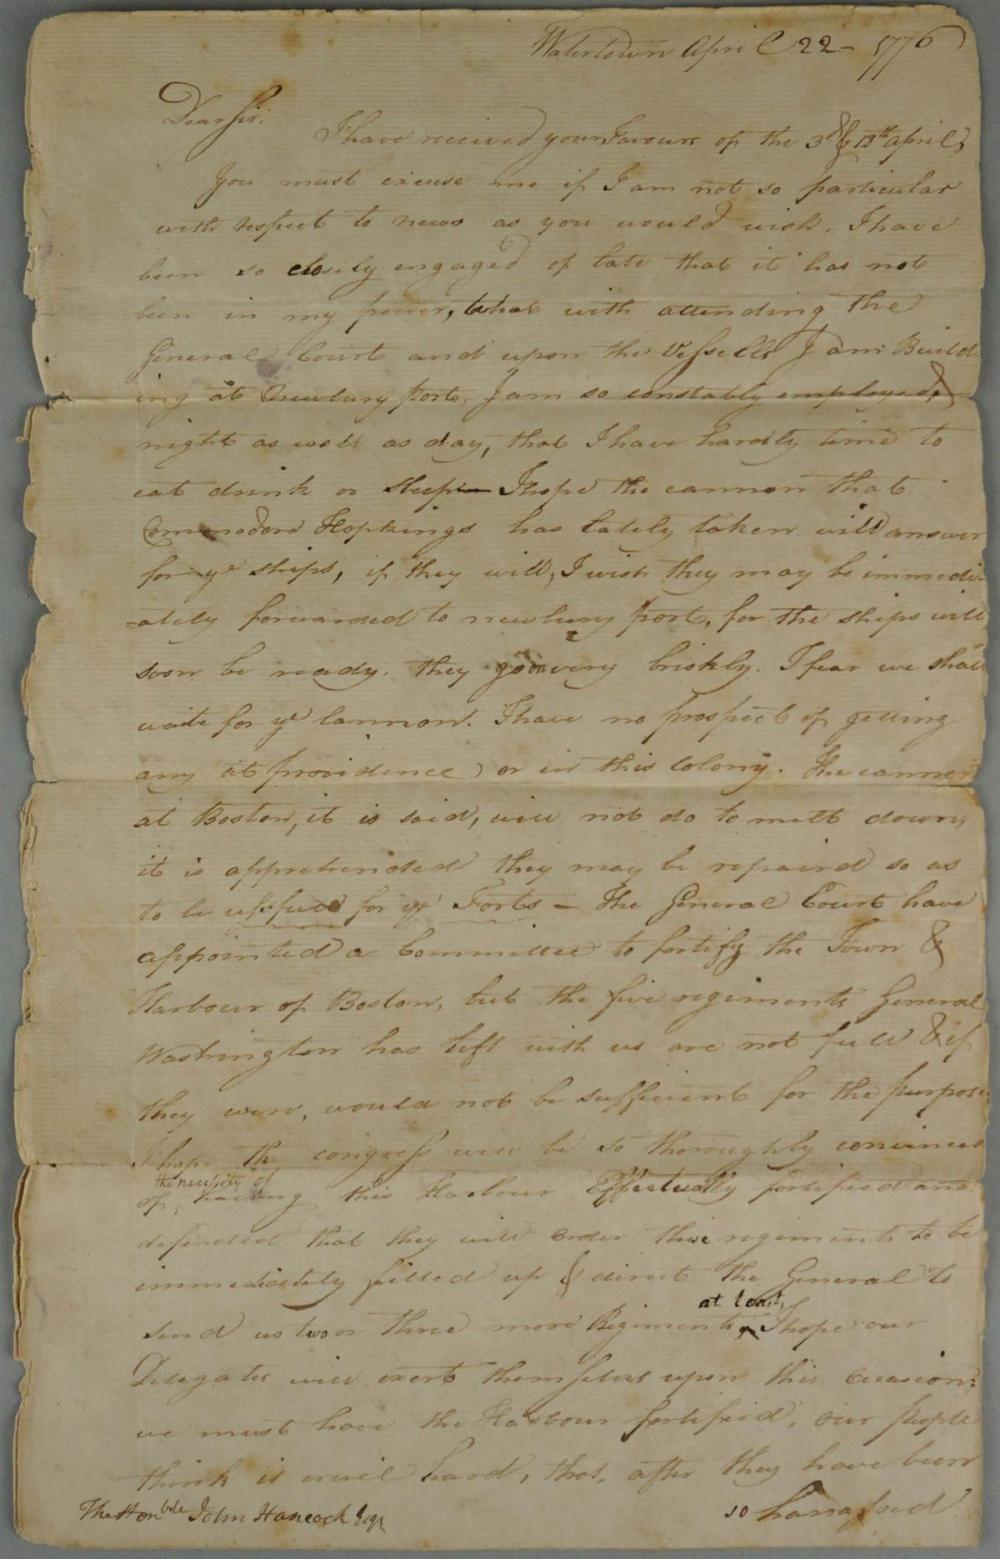 Watertown April 22 - 1776
Dear Sir.
I have received your Favours of the 3d & 12th April,
You must excuse me if I am not so particular
with respect to news as you would wish. I have
been so closely engaged of late that it has not
been in my power, what with attending the
General Court and upon the Vessells I am Build
ing at Newbury port, I am so constably employed, &
night as well as day, that I have hardly time to
eat drink or sleep — I hope the cannon that
Commodore Hopkings has lately taken will answer
for ye ships, if they will, I wish they may be immedi-
=ately forwarded to newbury port, for the ships will
soon be ready. they go on very briskly. I fear we shall
waite for ye Cannon. I have no prospect of getting
any at providence or in this Colony. The cannon
at Boston, it is said, will not do to melt down,
it is apprehended they may be repaird so as
to be usefull for ye Forts — The General Court have
appointed a Committee to fortify the Town &
Harbour of Boston, but the five regiments General
Washington has left with us are not full & if
they were, would not be sufficient for the purpose
I hope the congress will be so thoroughly convinced
of the necessity of having this Harbour Effectually fortified and
defended that they will order these regiments to be
immediately filled up & direct the General to
send us two or three more Regiments at least, I hope our
Delegates will exert themselves upon this occasion:
we must have the Harbour fortified, our people
think is cruel hard, that, after they have been
The Honble John Hancock Esqr so harrassed